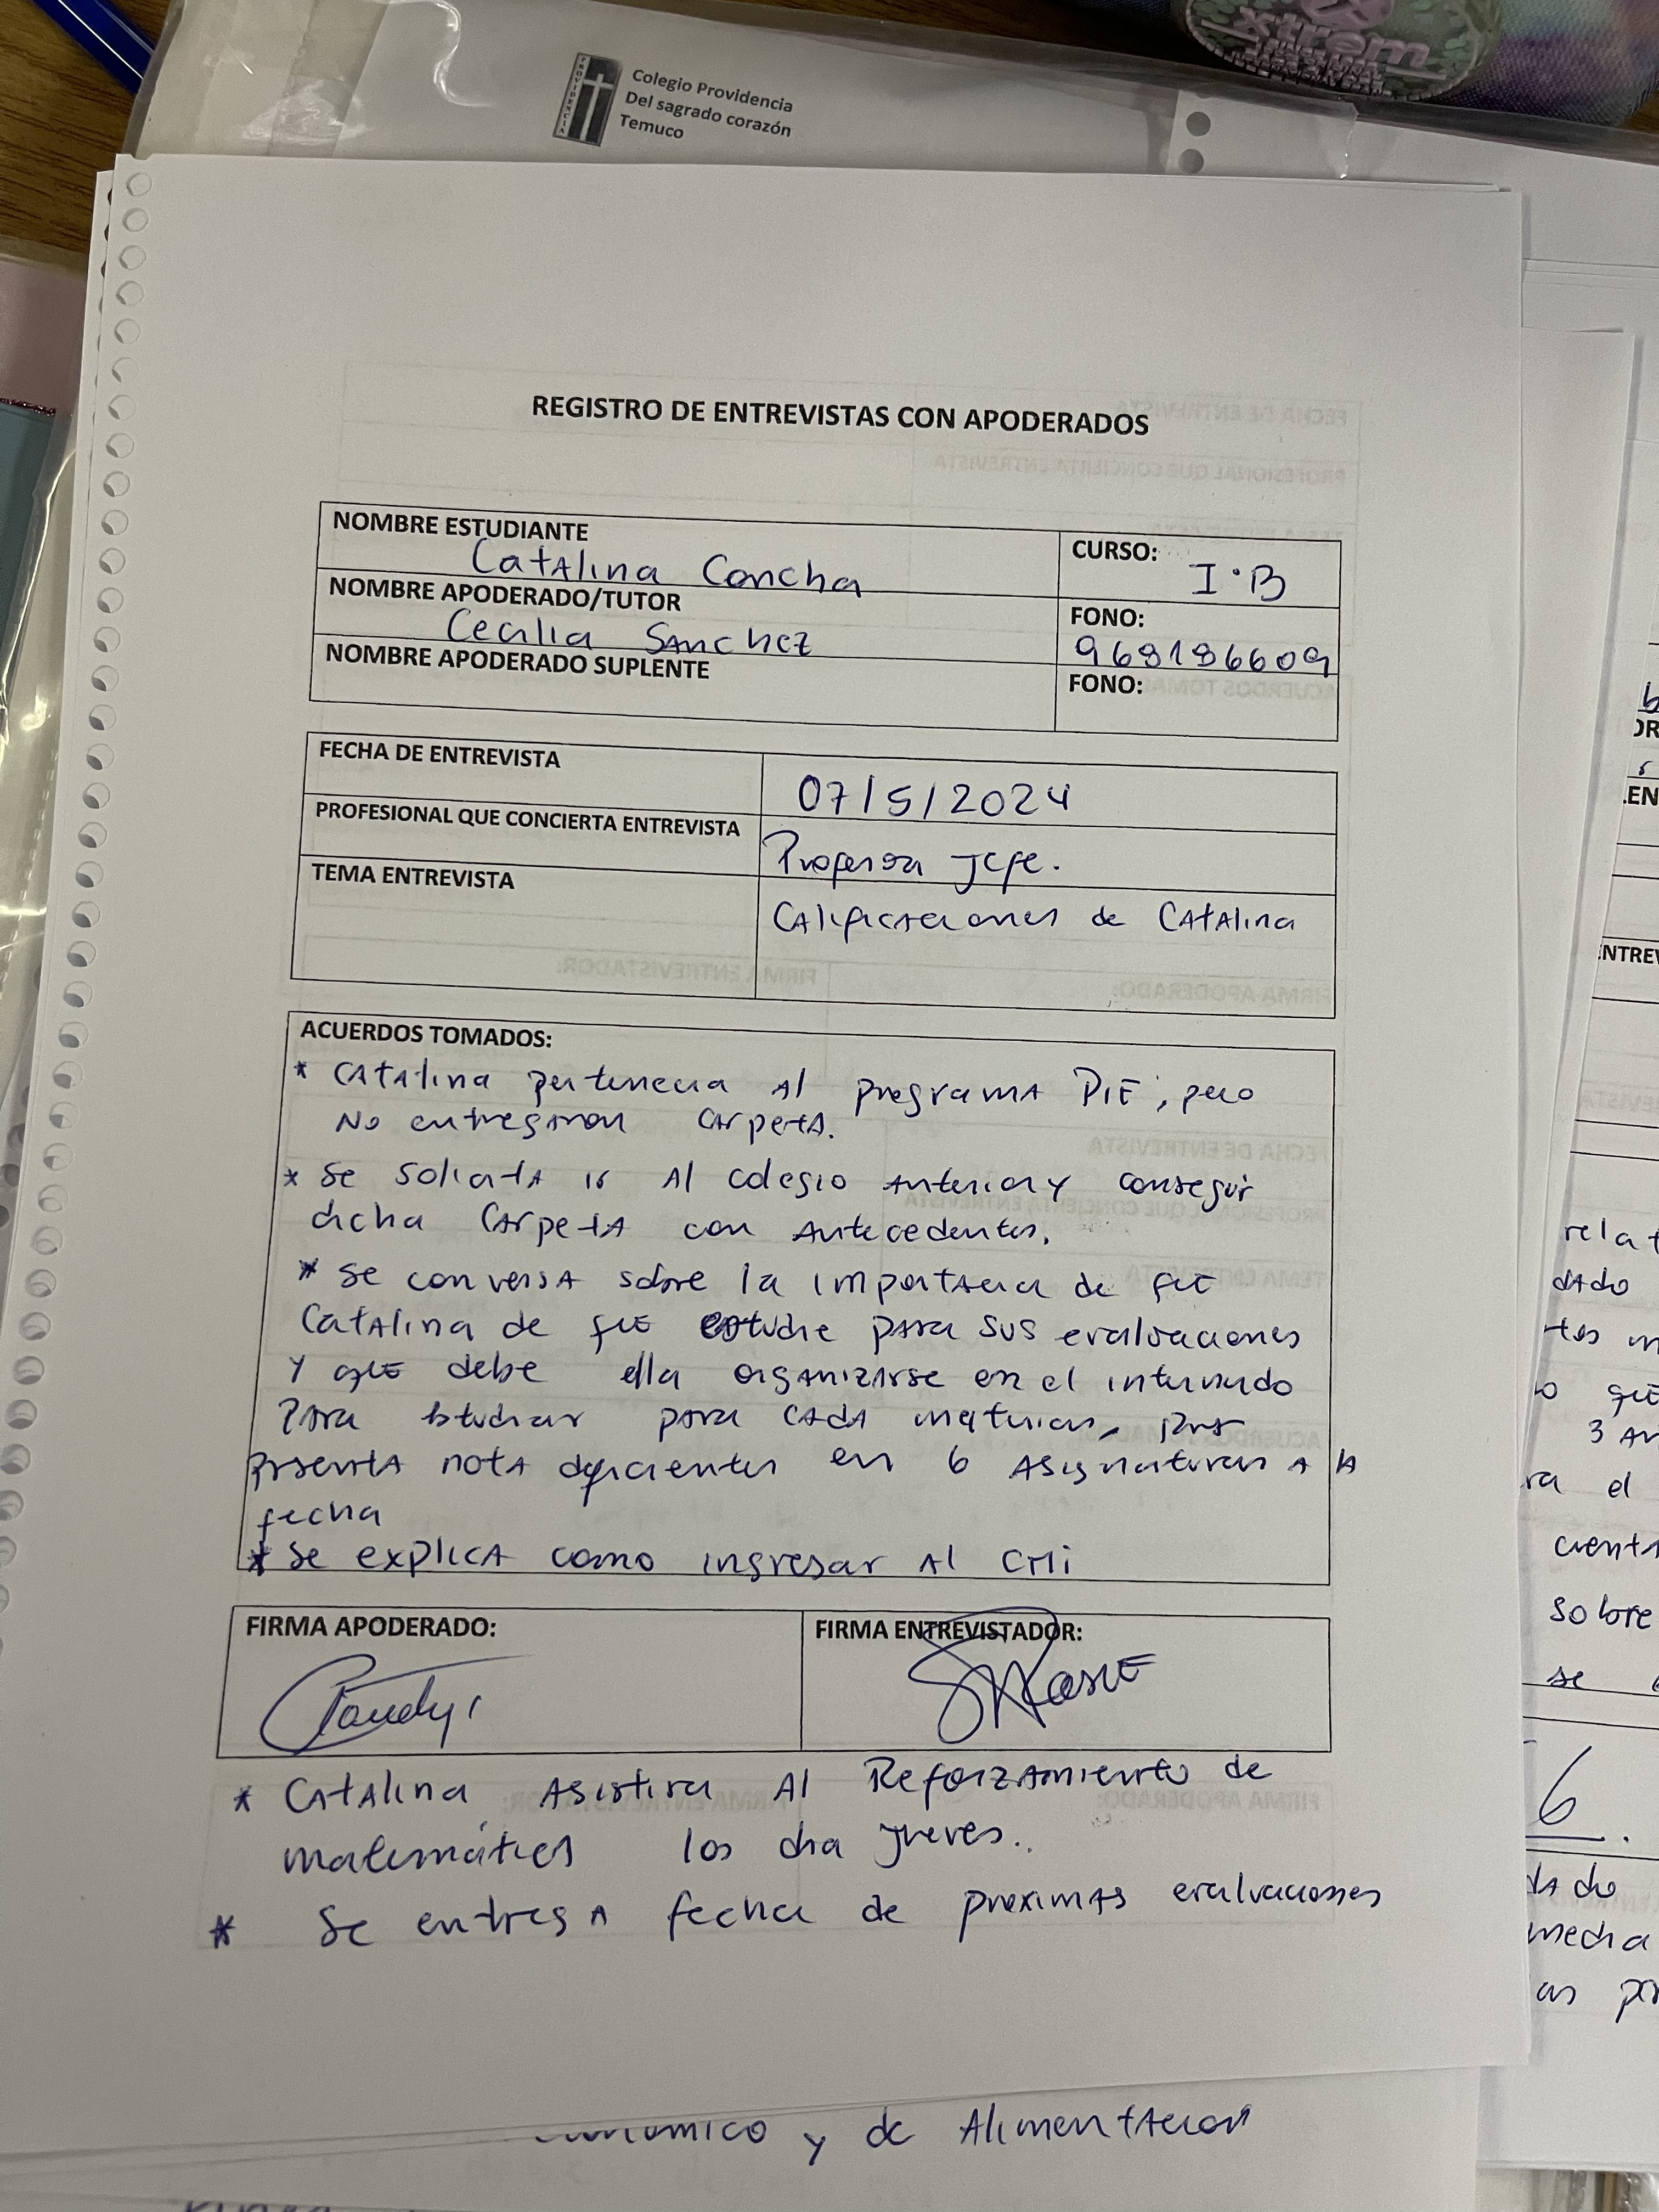 xtrem
PROVIDENCIA
Colegio Providencia
Del sagrado corazón
Temuco
REGISTRO DE ENTREVISTAS CON APODERADOS
NOMBRE ESTUDIANTE
Catalina Concha
CURSO:
I°B
NOMBRE APODERADO/TUTOR
Cecilia Sanchez
FONO:
968186609
NOMBRE APODERADO SUPLENTE
FONO:
FECHA DE ENTREVISTA
07/5/2024
PROFESIONAL QUE CONCIERTA ENTREVISTA
Profesora Jefe.
TEMA ENTREVISTA
Calificaciones de Catalina
ACUERDOS TOMADOS:
* Catalina pertenecia al programa PIE, pero
No entregaron carpeta.
* Se solicita ir al colegio anterior y conseguir
dicha carpeta con antecedentes.
* Se conversa sobre la importancia de que
Catalina de que estudie para sus evaluaciones
y que debe ella organizarse en el internado
para estudiar para cada materias, pues
presenta nota deficientes en 6 asignaturas a la
fecha
* Se explica como ingresar al CMi
FIRMA APODERADO:
FIRMA ENTREVISTADOR:
* Catalina asistira al Reforzamiento de
matemáticas los dia jueves.
* Se entrega fecha de proximas evaluaciones
y de Alimentacion
relat
dado
3
ra el
cuenta
sobre
se
6.
dado
media
as